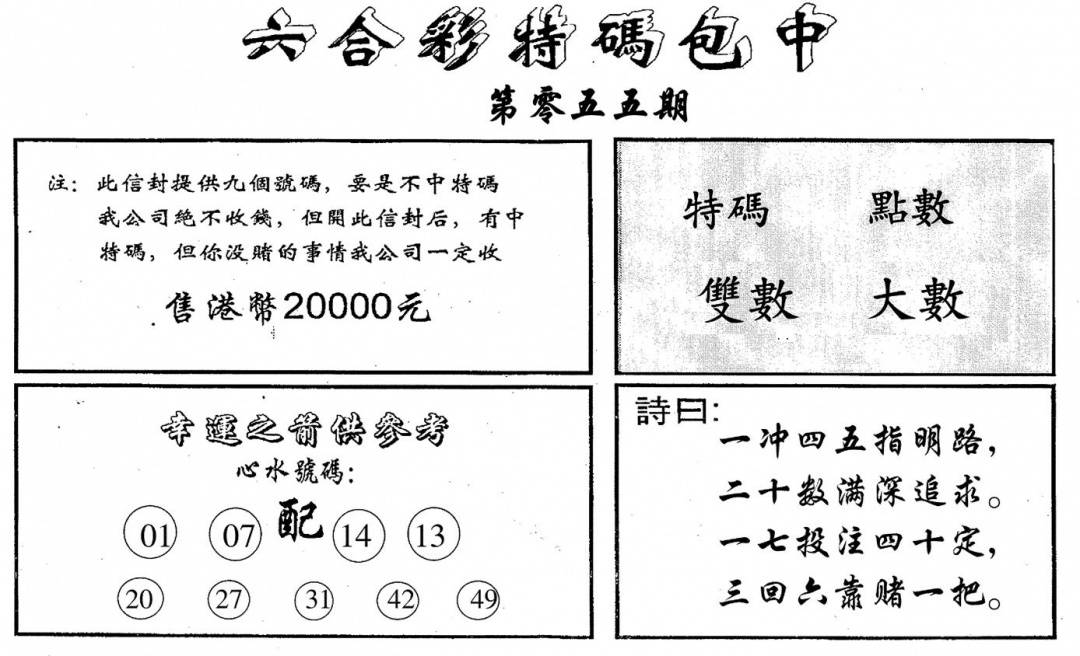 六合彩特碼包中
第零五五期
注：此信封提供九個號碼，要是不中特碼
我公司絕不收錢，但開此信封后，有中
特碼，但你没賭的事情我公司一定收
售港幣20000元
特碼 點數
雙數 大數
幸運之箭供參考
心水號碼：
01 07 配 14 13
20 27 31 42 49
詩曰：
一冲四五指明路，
二十数满深追求。
一七投注四十定，
三回六靠赌一把。